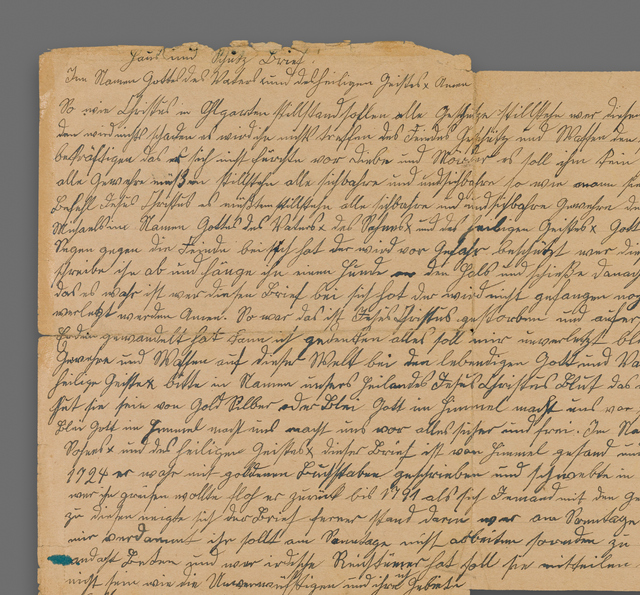 Haus und Schutz Brief!
Im Namen Gottes des Vaters und des heiligen Geistes x Amen
So wie Christus in Ölgarten stillstand sollen alle Geschütze stillstehn wer diesen
den wird nichts schaden es wird ihn nichts treffen des Feindes Geschütz und Waffen den
bekräftigen das er sich nicht fürchten vor Diebe und Mörder es soll ihm kein
alle Gewehre müssen stillstehn alle sichtbare und unsichtbare so wie man sie
Befehl dieses Christus es müssen stillstehn alle sichtbare und unsichtbare Gewehre
im Namen Gottes des Vaters x des Sohnes x und des heiligen Geistes x Gott
Segen gegen die Feinde bei sich hat der wird vor Gefahr beschützt wer die
schreibe ihn ab und hänge ihn einen Hunde um den Hals und schieße danach
das es wahr ist wer diesen Brief bei sich hat der wird nicht gefangen noch
verletzt werden Amen. So war das ist Jesus Christus gestorben und
Erden gewandelt hat kann ist gedenken alles soll mir unverletzt
Gewehre und Waffen auf dieser Welt bei den lebendigen Gott und
heilige Geistes x bitte in Namen unsers Heilandes Jesus Christus Blut das
hut sie sein von Gold Silber oder Blei Gott im Himmel macht uns vor
Blei Gott im Himmel macht uns vor alles sicher und frei. Im
Sohnes x und des heiligen Geistes x dieser Brief ist von Himmel gesand
1724 er wahr mit goldenen Buchstaben geschrieben und schwebte in
wer ihn greifen wollte flog er zurück bis 1791 als sich Jemand mit den
zu diesen neigte sich der Brief ferner stand darin wer am Sonntage
mir verdammt ihr sollt am Sonntage nicht arbeiten sondern zu
andacht Beten und wer irdische Reichtümer hat soll sie mitteilen
nicht sein wie die Unvernünftigen und ihre Gebiete